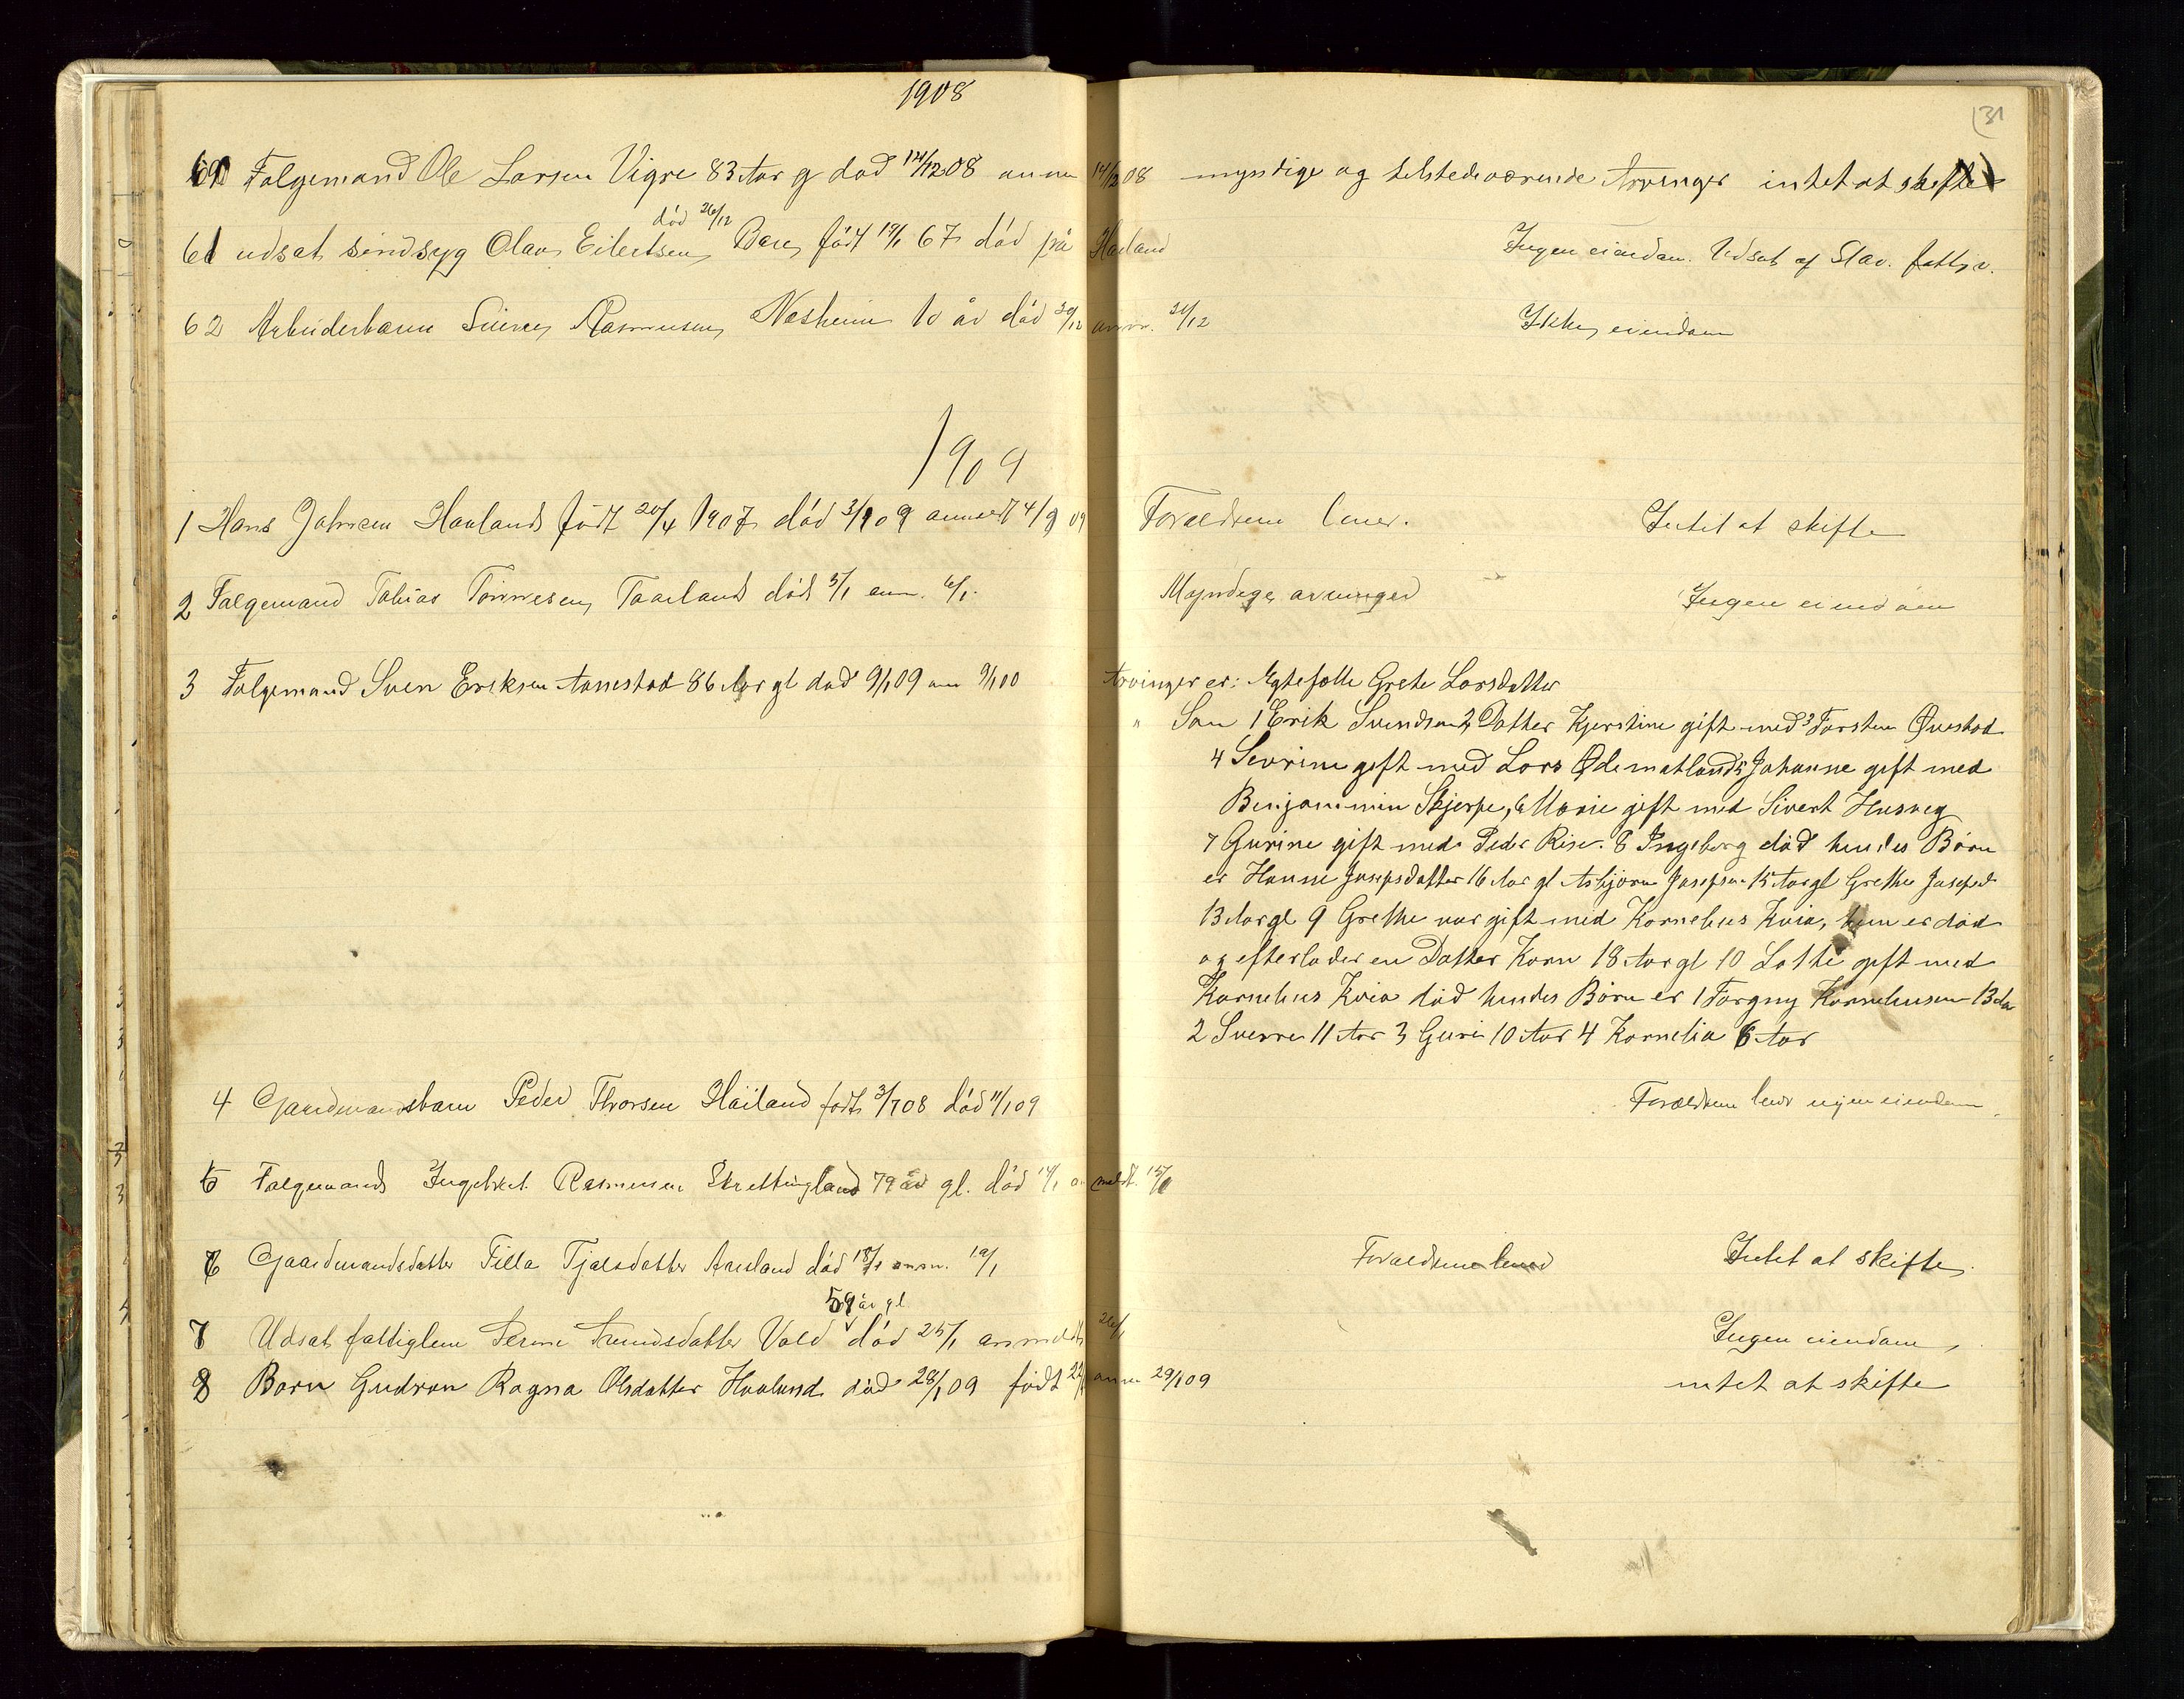 1908
(31
60 Folgemand Ole Larsen Vigre 83 Aar g død 14/12 08 anm 14/12 08 myndige og tilstedeværende Arvinger intet at skifte
død 26/12
61 udsat sindsyg Olav Eilertsen Bore født 19/1 67 død på Høiland Ingen eiendom. Udsat af Stav. fattigv.
62 Arbeiderbarn Rasmusen Nesheim 10 år død 30/12 anm. 31/12 Ikke eiendom
1909
1 Hans Johnsen Haaland født 20/4 1907 død 3/1 09 anmeldt 4/1 09 Forældrene lever. Intet at skifte
2 Følgemand Tobias Tønnesen Taarland død 5/1 anm. 6/1. Myndige arvinger Ingen eiendom
3 Folgemand Sven Eriksen Aanestad 86 Aar gl død 9/1 09 an 9/1 00 Arvinger er: Ægtefælle Grete Larsdatter
" Søn 1 Erik Svendsen 2 Datter Kjerstine gift med 3 Torsten Øvestad
4 Sevrine gift med Lars Ødemotland 5 Johanne gift med
Benjammin Skjerpe, 6 Marie gift med Sivert Husveg
7 Gurine gift med Peder Rise. 8 Ingeborg død hendes Børn
er Hanne Josepsdatter 16 Aar gl Asbjørn Josepsen 15 Aar gl Grethe Josepsd
13 Aar gl 9 Grethe var gift med Kornelius Kvia, hun er død
og efterlader en Datter Karn 18 Aar gl 10 Lotte gift med
Kornelius Kvia død hendes Børn er 1 Torgny Korneliusen 13 Aar
2 Sverre 11 Aar 3 Guri 10 Aar 4 Kornelia 6 Aar
4 Gaardmandsbarn Peder Thorsen Häiland født 3/7 08 død 11/1 09 Forældrene lever ingen eiendom
5 Følgemand Ingebret Rasmusen Skrettingland 79 år gl. død 14/1 anmeldt. 15/1
6 Gaardmandsdatter Tilla Tjalsdatter Aarsland død 18/1 anm. 19/1 Forældrene lever Intet at skifte
59 år gl
7 Udsat fattiglem Serine Svendsdatter Vold død 25/1 anmeldt 26/1 Ingen eiendom
8 Barn Gudron Ragna Olsdatter Haaland død 28/1 09 født 22/1 anm 29/1 09 intet at skifte